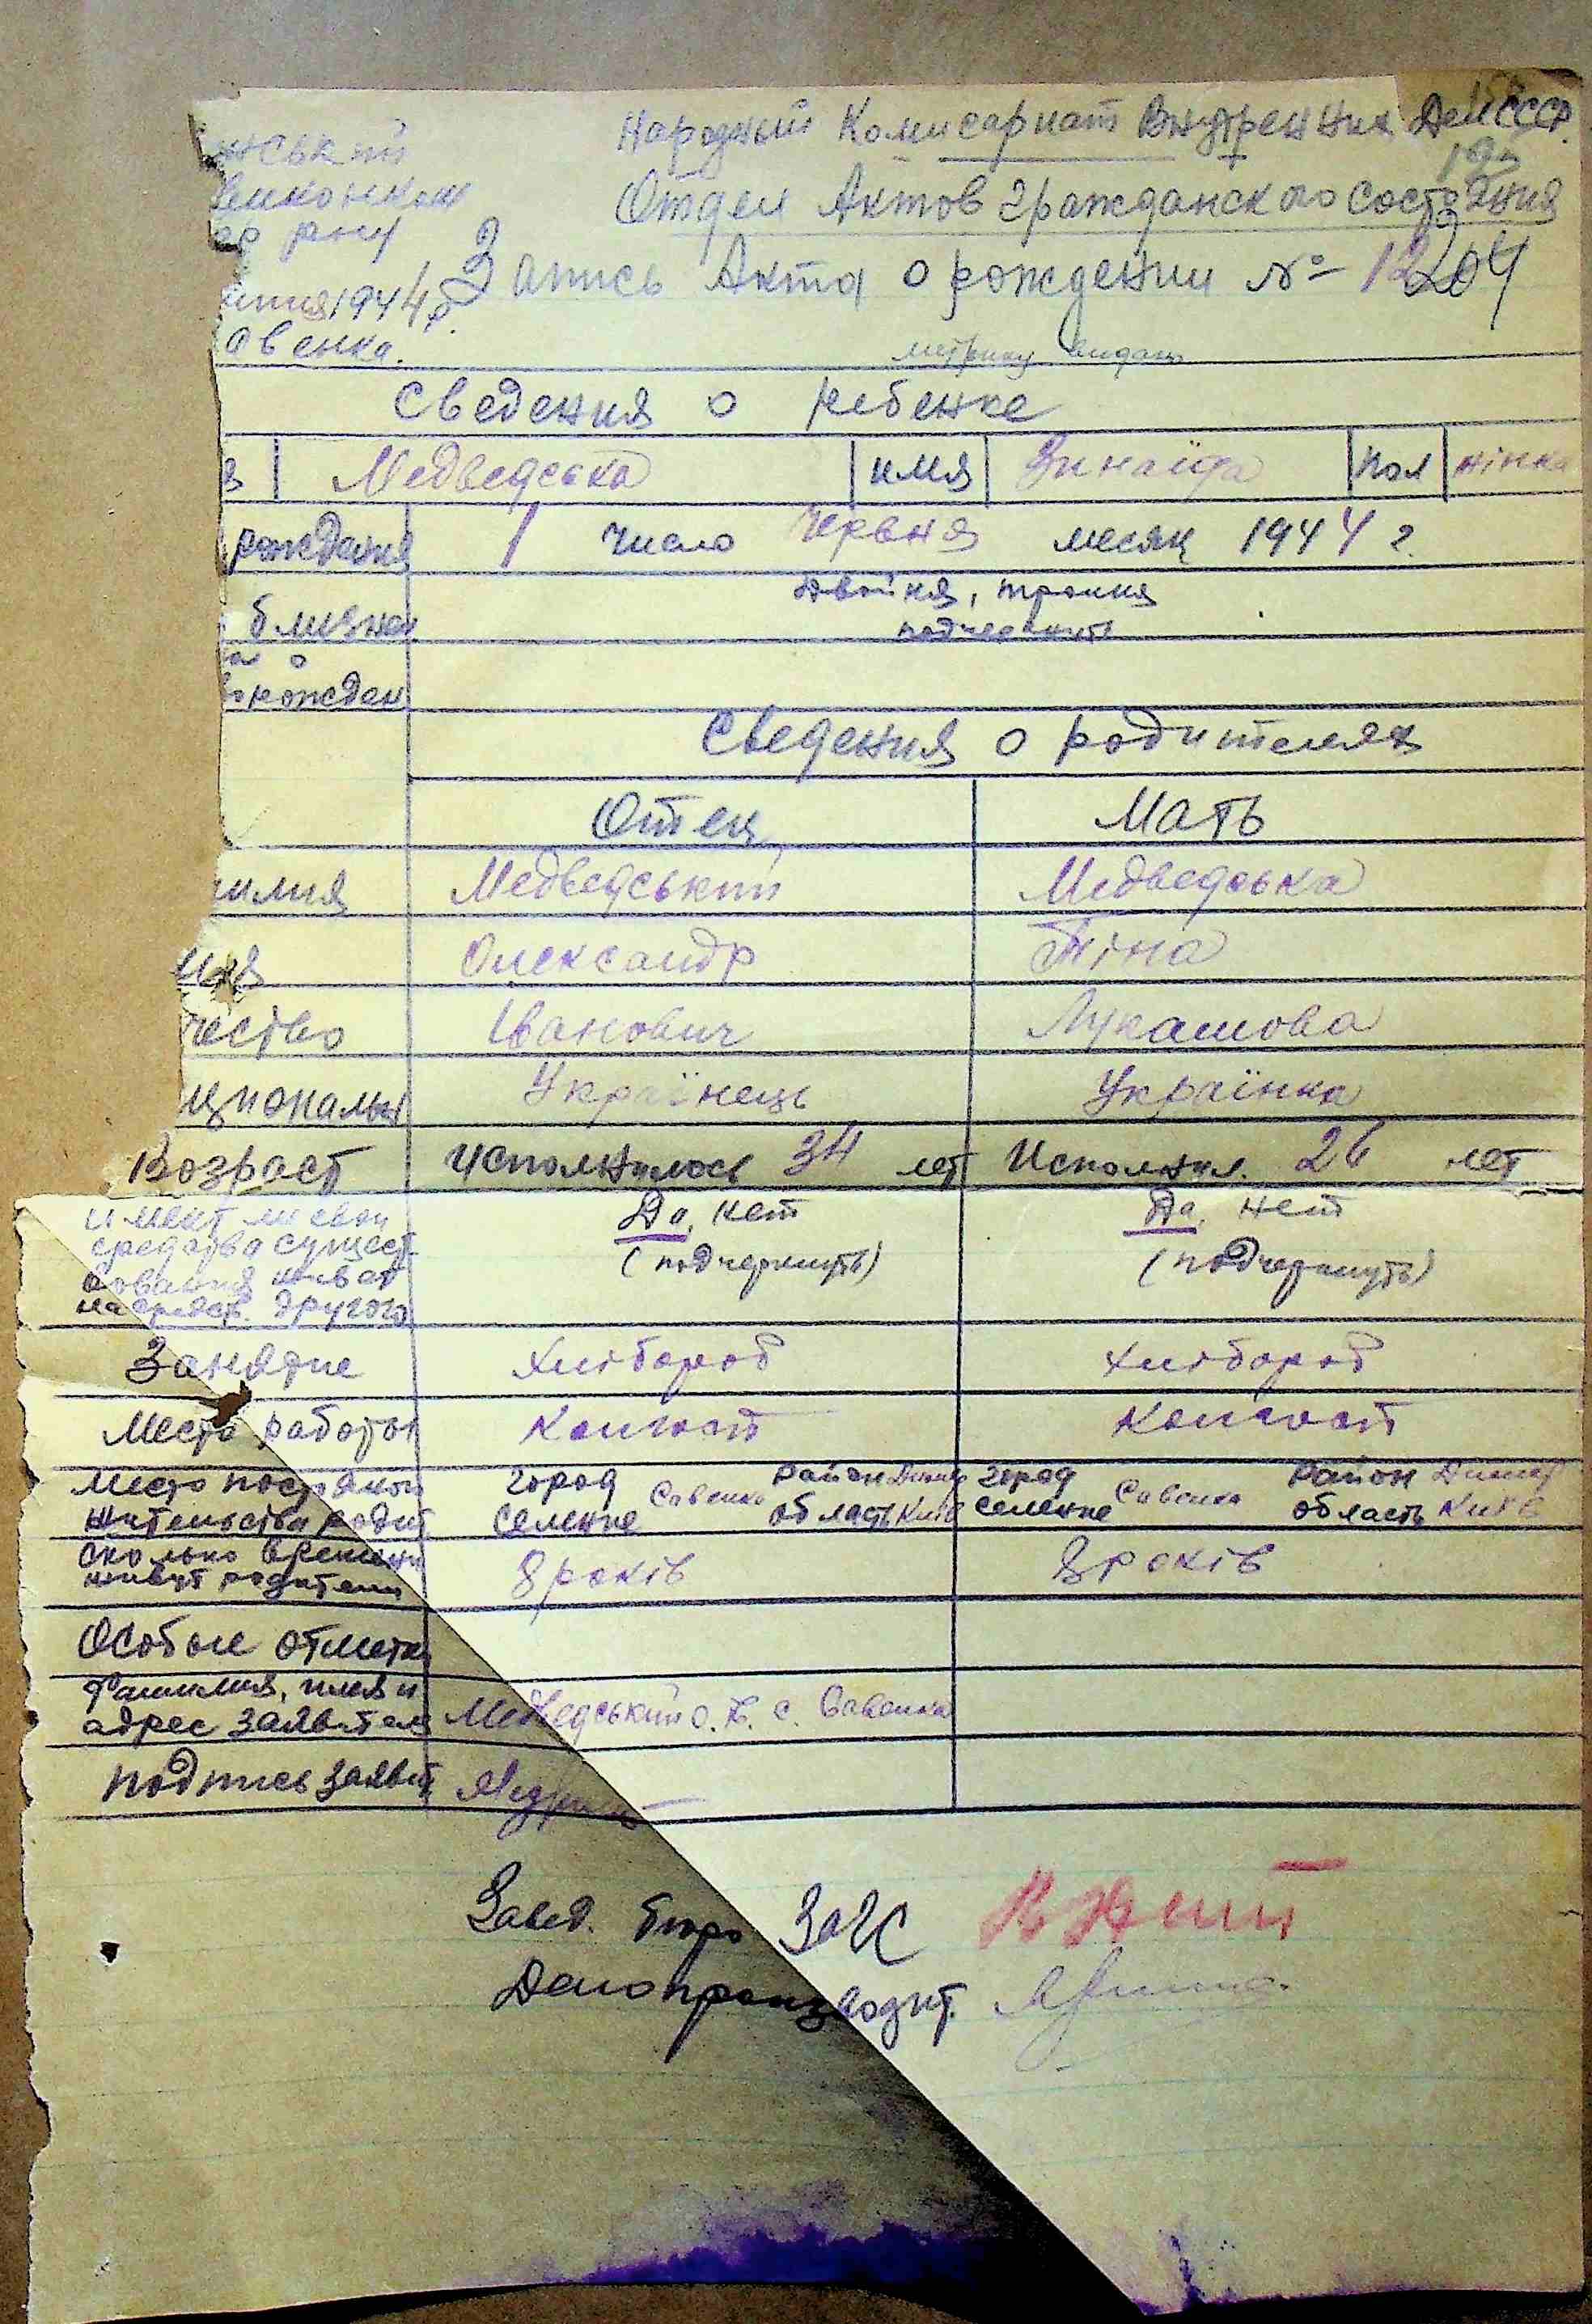 Народный Комисариат Внутренних Дел СССР.
Отдел Актов гражданского состояния
рну
1944 р.
авенка.
Запись Акта о рождении №
метрику видано
Сведения о ребенке
Медведська имя Зинаїда пол жінка
рождения 1 число Червня месяц 1944 г.
двойня, тройня
близнец
подчеркнуть
рожден
Сведения о родителях
Отец Мать
милия Медведський Медведська
мя Олександр
чество Іванович Лукашова
циональн Українець Українка
Возраст исполнилось 34 лет Исполнил. 26 лет
имеют ли свои Да, нет Да, нет
средства сущест (подчеркнуть) (подчеркнуть)
вования живет
на средств. другого
Занятие Хлібороб Хлібороб
Место работы Колгосп Колгосп
Место постоянн город Савенка район Димер город Савенка район Димер
жительства родит селение область Київ селение область Київ
Сколько времени 8 років 8 років
живут родители
Особые отметки
Фамилия, имя и
адрес заявителя Медведський О. І. с. Савенка
подпись заявит
Завед. бюро ЗАГС
Делопроизводит.